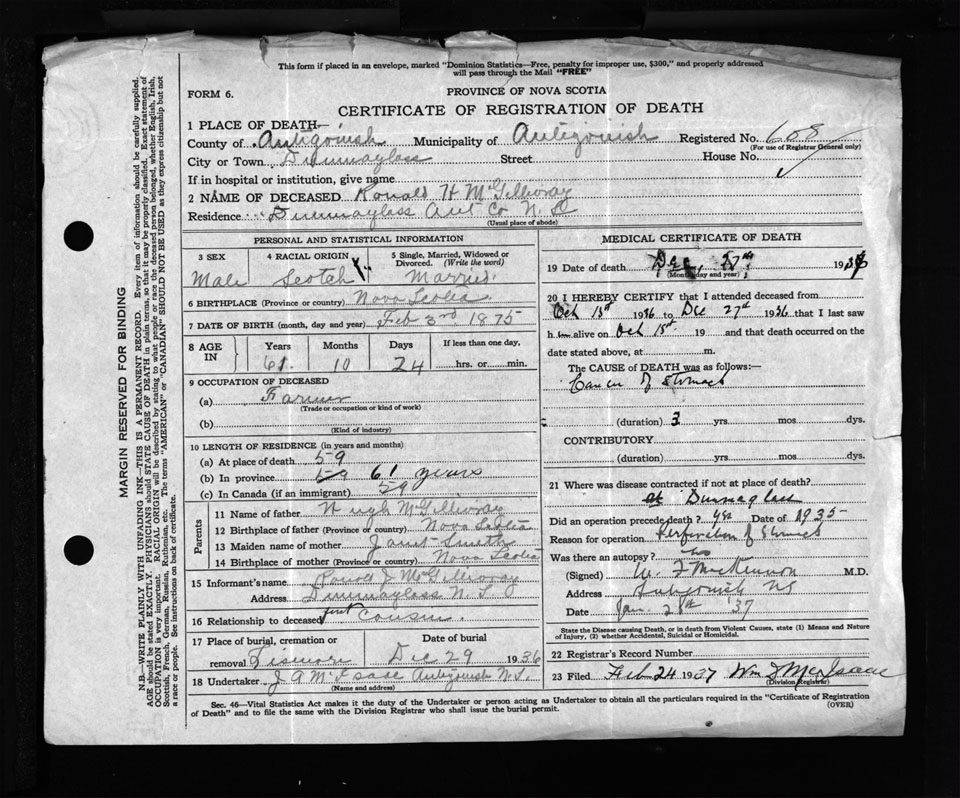 This form if placed in an envelope, marked "Dominion Statistics—Free, penalty for improper use, $300," and properly addressed
will pass through the Mail "FREE"
FORM 6.
PROVINCE OF NOVA SCOTIA
CERTIFICATE OF REGISTRATION OF DEATH
1 PLACE OF DEATH—
County of Antigonish Municipality of Antigonish Registered No. 608
(For use of Registrar General only)
City or Town Dunmaglass Street House No.
If in hospital or institution, give name
2 NAME OF DECEASED Ronald H McGillivray
Residence Dunmaglass Ant Co N. S
(Usual place of abode)
PERSONAL AND STATISTICAL INFORMATION
3 SEX 4 RACIAL ORIGIN 5 Single, Married, Widowed or
Divorced. (Write the word)
Male Scotch Married
6 BIRTHPLACE (Province or country) Nova Scotia
7 DATE OF BIRTH (month, day and year) Feb 3rd 1875
8 AGE IN Years Months Days If less than one day,
61 10 24 hrs. or min.
9 OCCUPATION OF DECEASED
(a) Farmer
(Trade or occupation or kind of work)
(b)
(Kind of industry)
10 LENGTH OF RESIDENCE (in years and months)
(a) At place of death 59
(b) In province 59 61 years
(c) In Canada (if an immigrant) 59
Parents
11 Name of father Hugh McGillivray
12 Birthplace of father (Province or country) Nova Scotia
13 Maiden name of mother Janet Smith
14 Birthplace of mother (Province or country) Nova Scotia
15 Informant's name Ronald J McGillivray
Address Dunmaglass N. S.
16 Relationship to deceased first Cousin.
17 Place of burial, cremation or Date of burial
removal Lismore Dec 29 1936
18 Undertaker J A McIsaac Antigonish N.S.
(Name and address)
MEDICAL CERTIFICATE OF DEATH
19 Date of death Dec. 27th 1936
(Month, day and year)
20 I HEREBY CERTIFY that I attended deceased from
Oct 15st 1936 to Dec 27th 1936 that I last saw
him alive on Oct 15st 19 and that death occurred on the
date stated above, at m.
The CAUSE of DEATH was as follows:—
Cancer of Stomach
(duration) 3 yrs mos dys.
CONTRIBUTORY
(duration) yrs mos dys.
21 Where was disease contracted if not at place of death?
at Dunmaglass
Did an operation precede death? yes Date of 1935
Reason for operation Perforation of Stomach
Was there an autopsy? no
(Signed) W. F MacKinnon M.D.
Address Antigonish NS
Date Jan. 28th 37
State the Disease causing Death, or in death from Violent Causes, state (1) Means and Nature
of Injury, (2) whether Accidental, Suicidal or Homicidal.
22 Registrar's Record Number
23 Filed Feb 24 1937 Wm J McIsaac
(Division Registrar)
Sec. 46—Vital Statistics Act makes it the duty of the Undertaker or person acting as Undertaker to obtain all the particulars required in the "Certificate of Registration
of Death" and to file the same with the Division Registrar who shall issue the burial permit.
(OVER)
MARGIN RESERVED FOR BINDING
N.B.—WRITE PLAINLY WITH UNFADING INK—THIS IS A PERMANENT RECORD. Every item of information should be carefully supplied.
AGE should be stated EXACTLY. PHYSICIANS should STATE CAUSE OF DEATH in plain terms, so that it may be properly classified. Exact statement of
OCCUPATION is very important. RACIAL ORIGIN will be described by stating to what people or race the deceased person belonged, whether English, Irish,
Scottish, French, German, Russian, Ruthenian, etc. The terms "AMERICAN" or "CANADIAN" SHOULD NOT BE USED as they express citizenship but not
a race or people. See instructions on back of certificate.